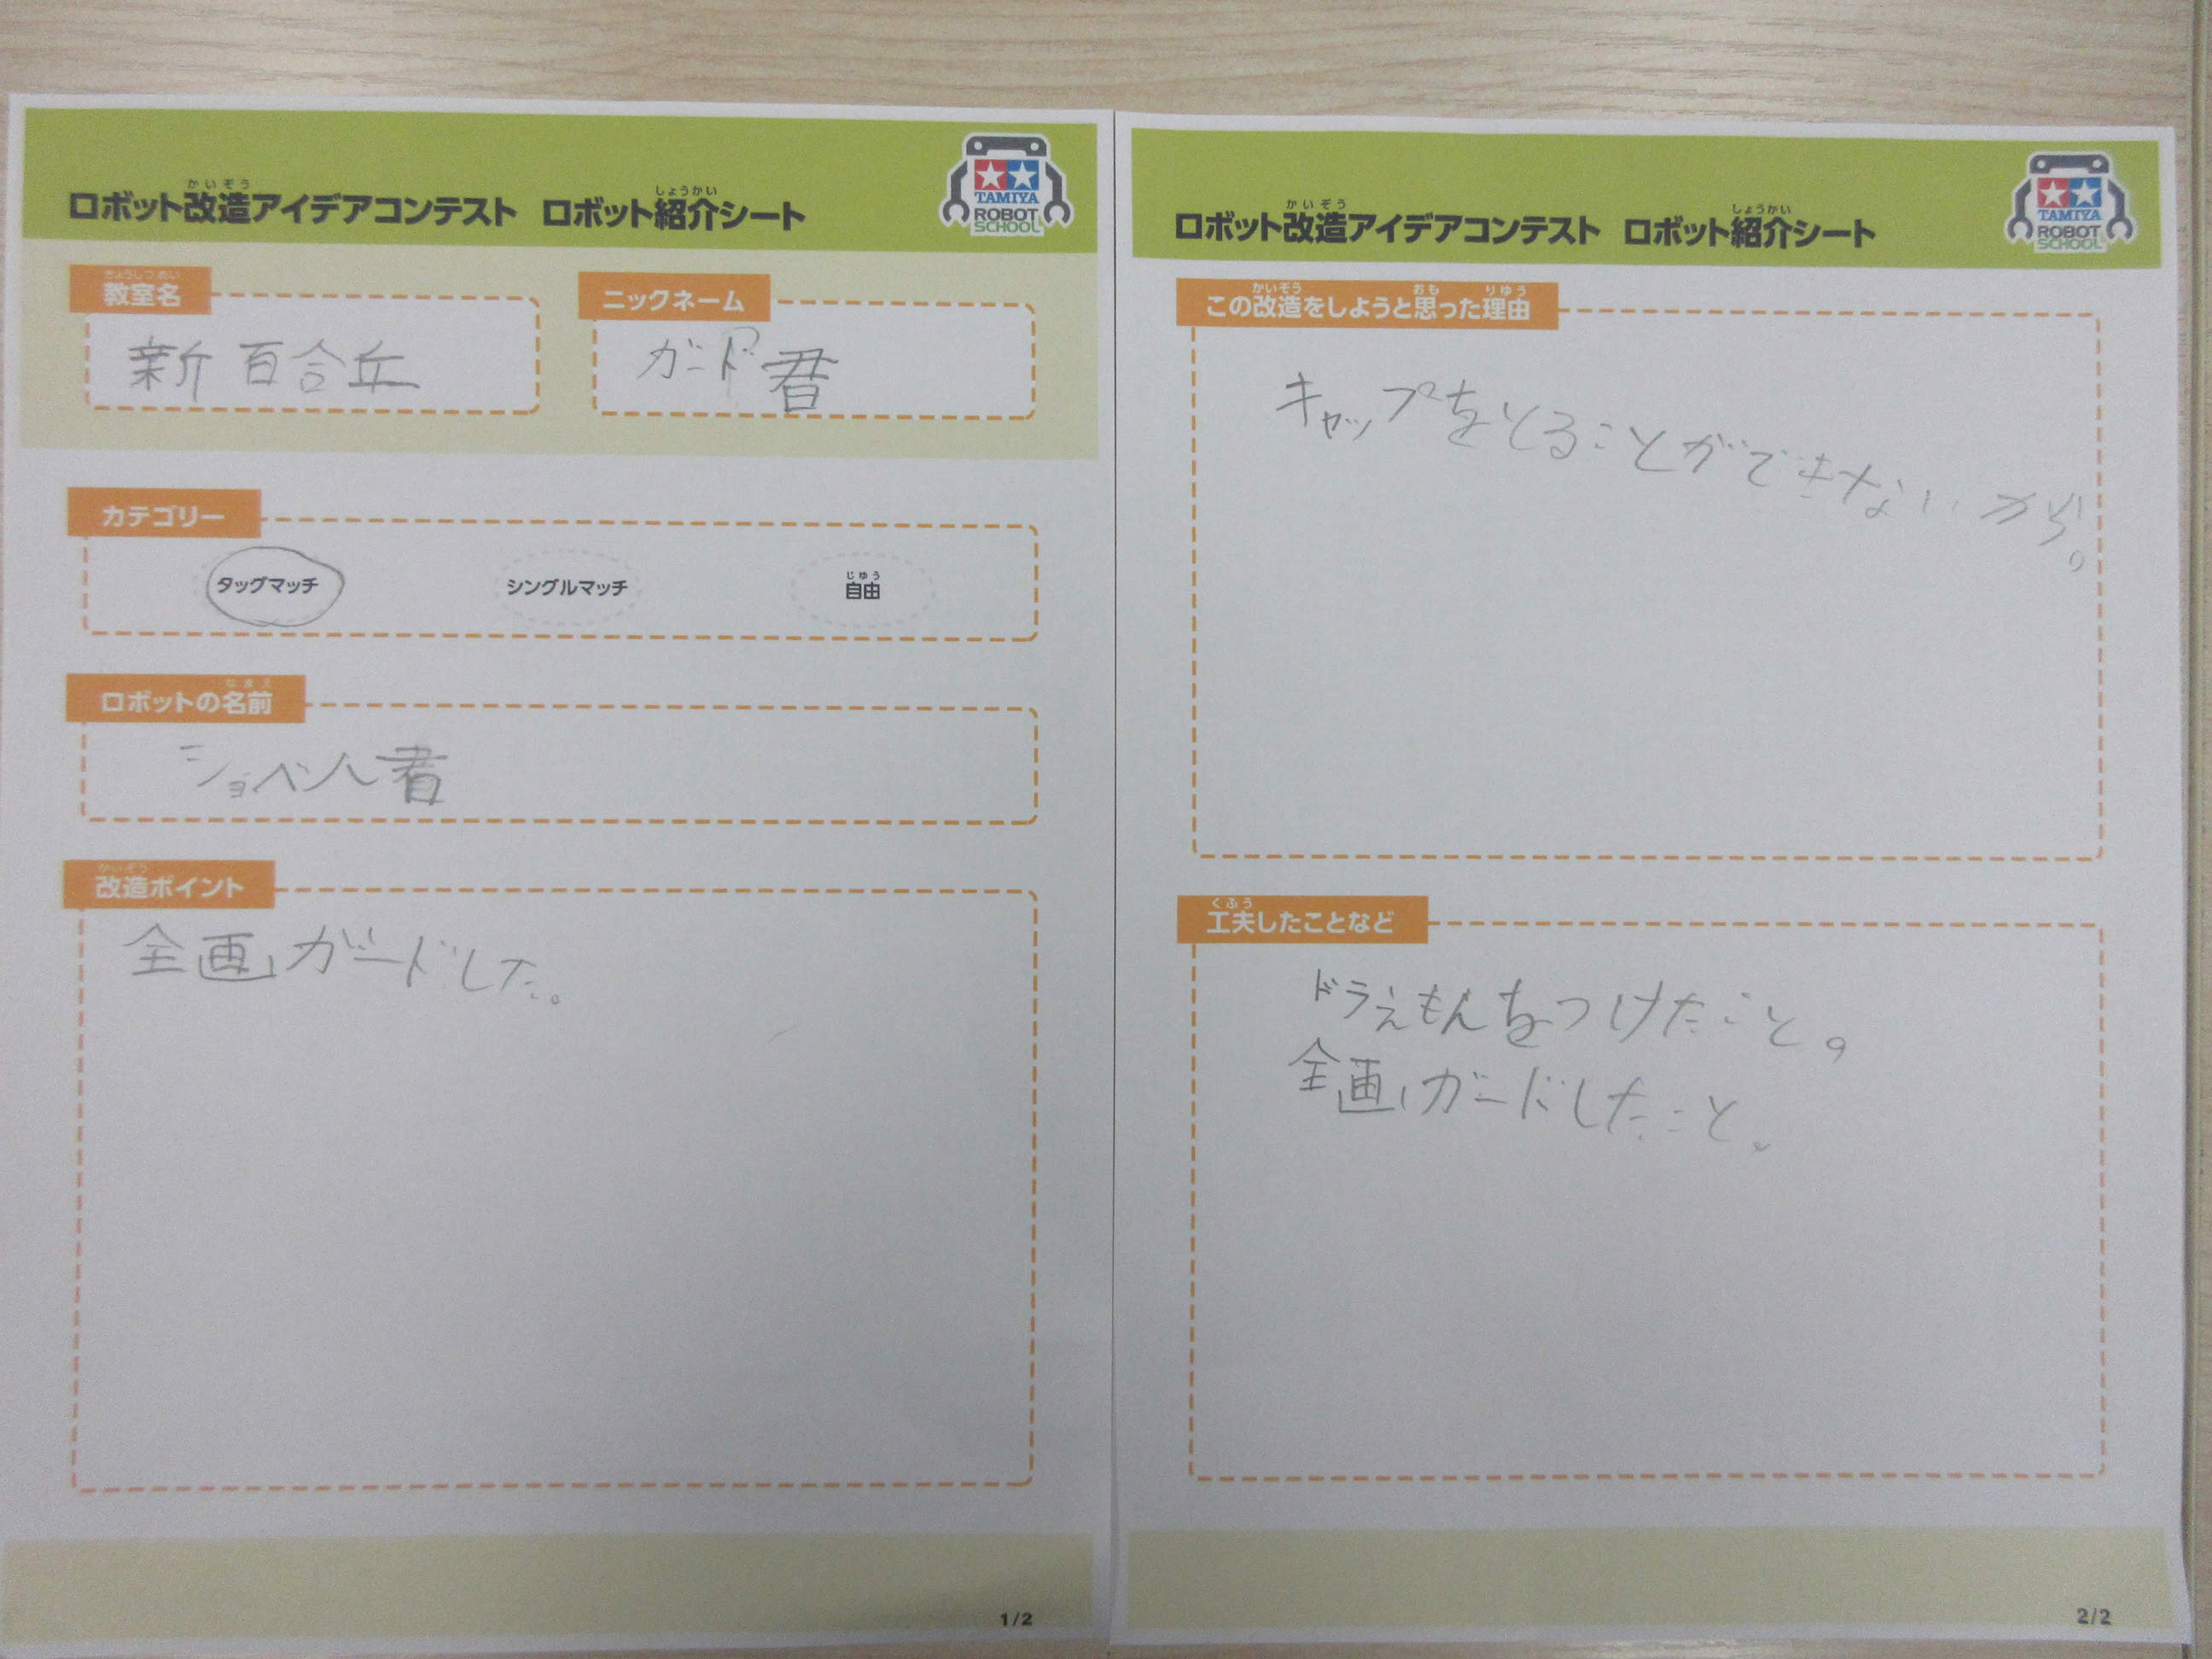 ロボット改造アイデアコンテスト ロボット紹介シート
かいぞう
しょうかい
TAMIYA
ROBOT
SCHOOL
教室名
きょうしつめい
新百合丘
ニックネーム
ガード君
カテゴリー
タッグマッチ
シングルマッチ
自由
じゆう
ロボットの名前
なまえ
ショベル君
改造ポイント
かいぞう
全画ガードした。
1/2
ロボット改造アイデアコンテスト ロボット紹介シート
かいぞう
しょうかい
TAMIYA
ROBOT
SCHOOL
この改造をしようと思った理由
かいぞう
おも
りゆう
キャップをとることができないから。
工夫したことなど
くふう
ドラえもんをつけたこと。
全画ガードしたこと。
2/2